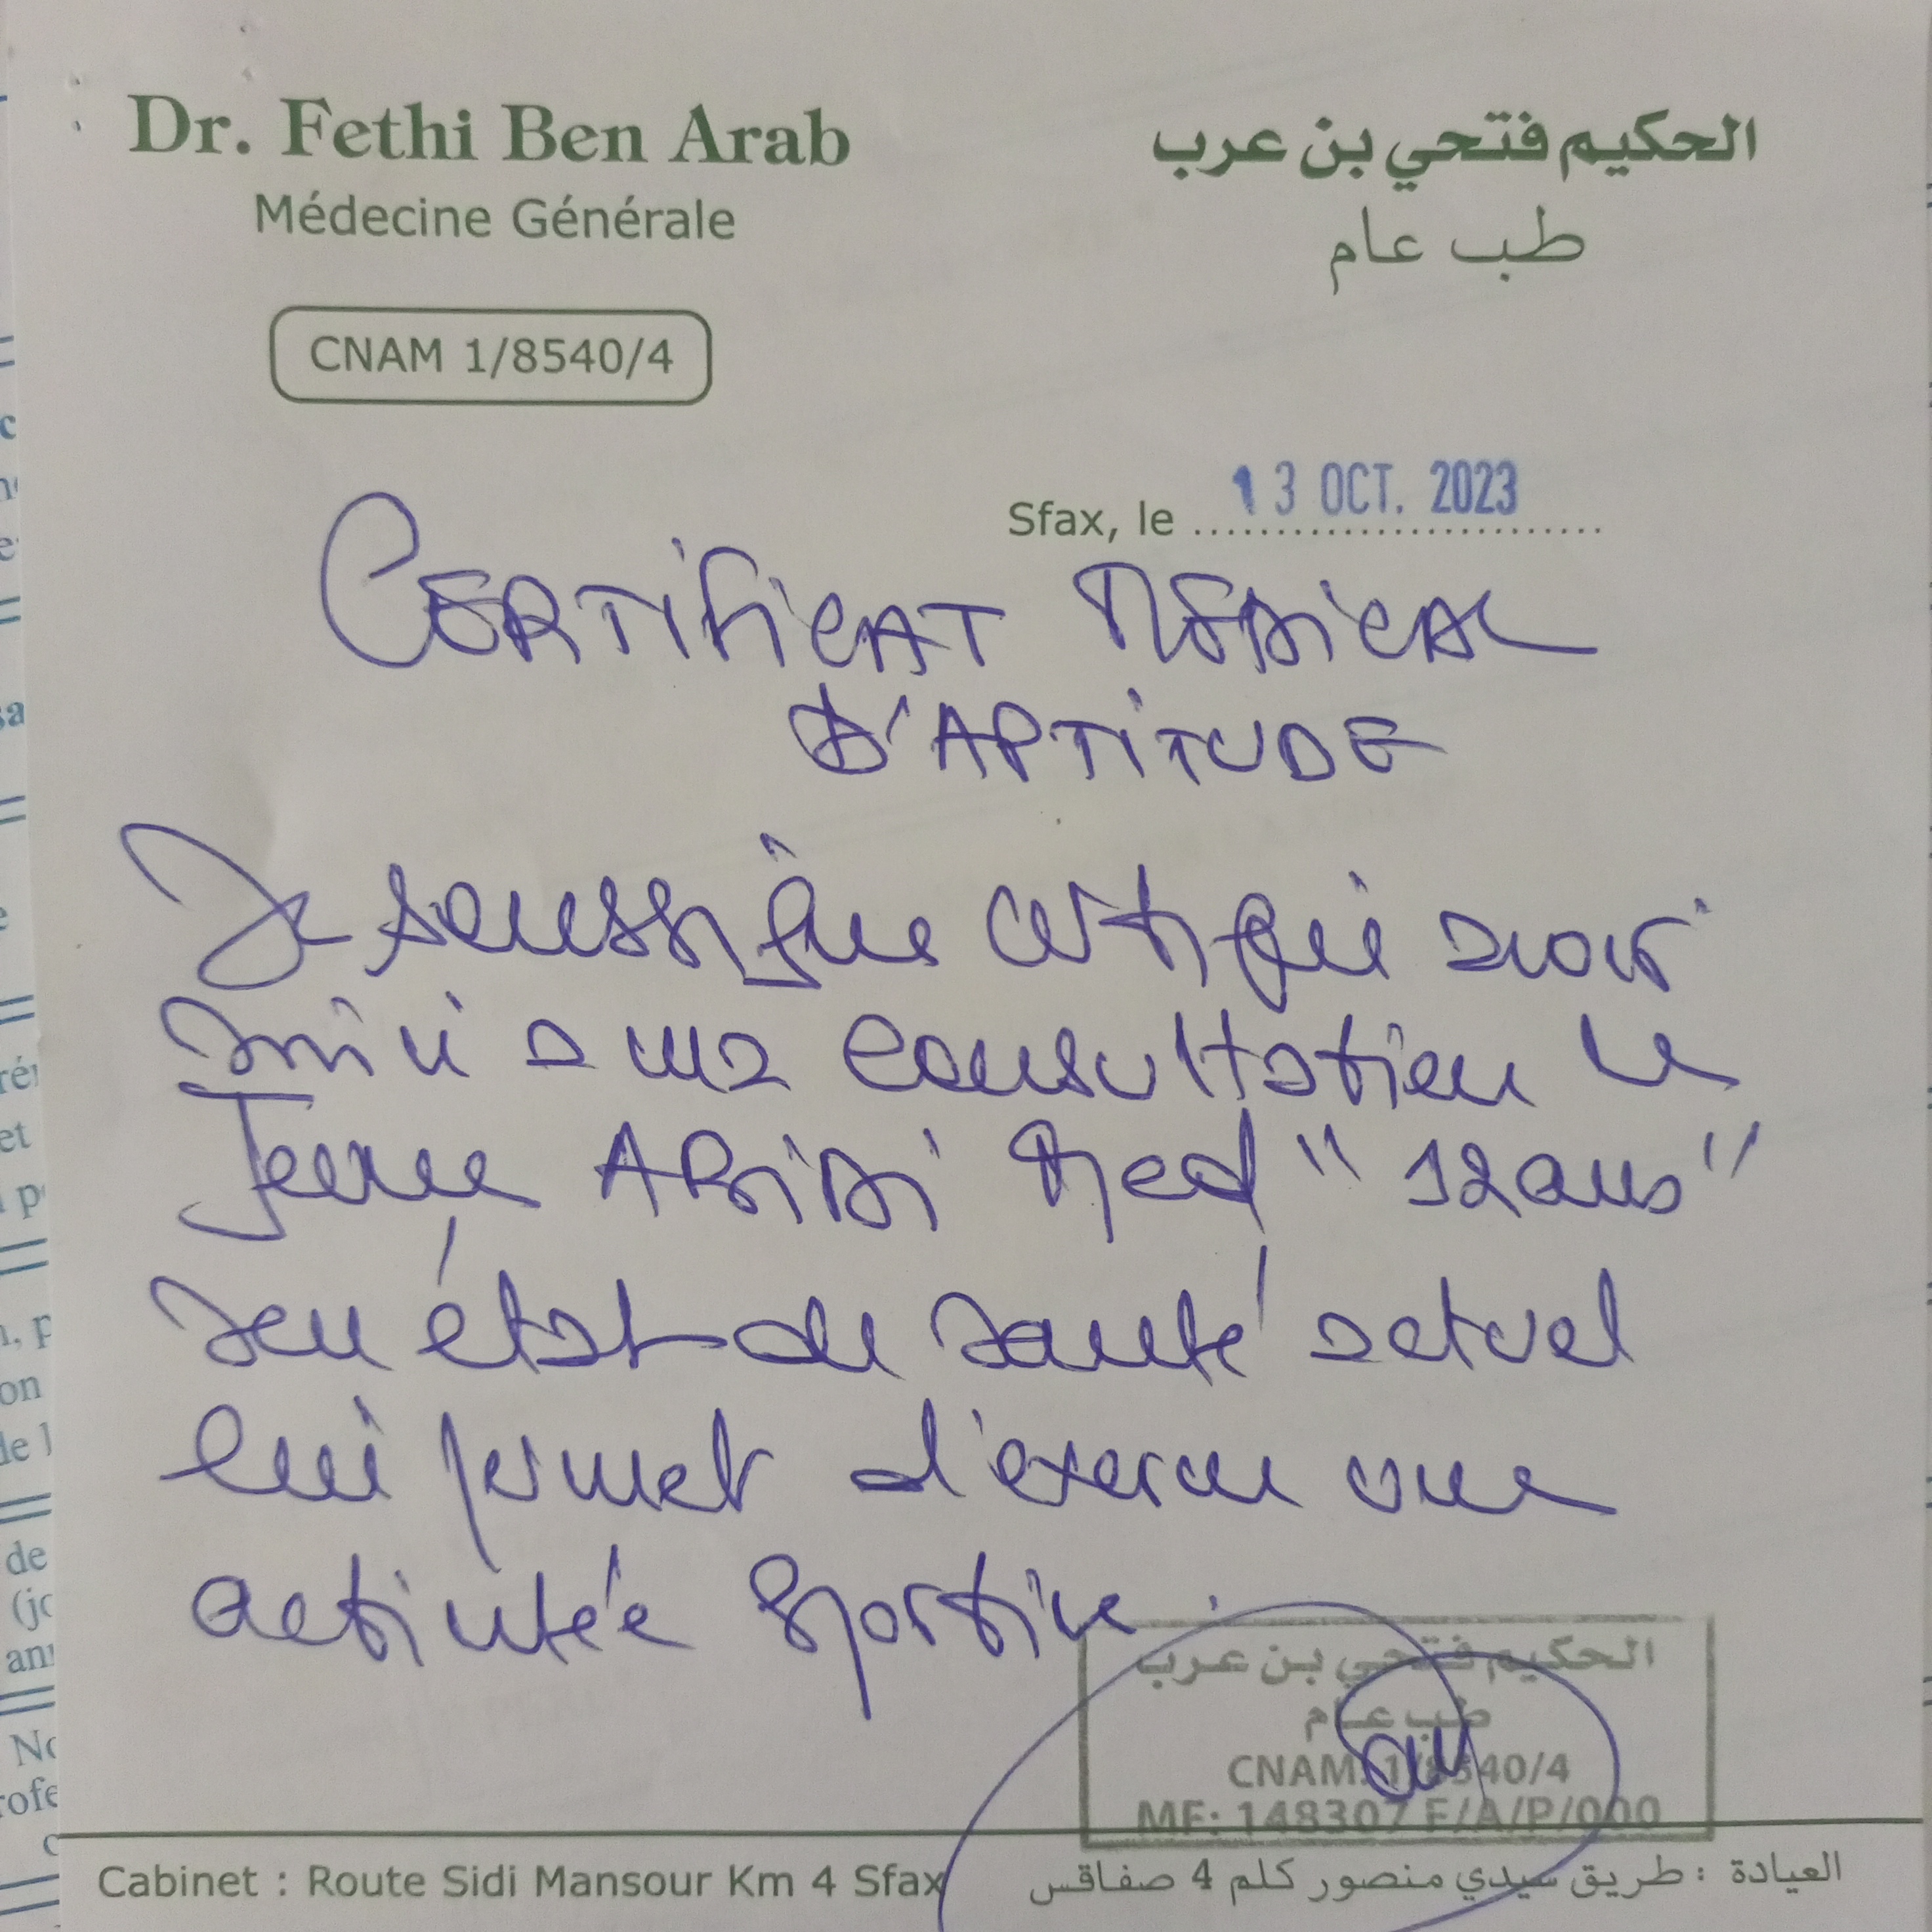 Dr. Fethi Ben Arab
Médecine Générale
الحكيم فتحي بن عرب
طب عام
CNAM 1/8540/4
Sfax, le 13 OCT. 2023
CERTIFICAT MÉDICAL
D'APTITUDE
Je soussigné certifie avoir
suivi a ma consultation le
Jeune ABIDI Med "12 ans"
son état de santé actuel
lui permet d'exercer une
activitée sportive.
الحكيم فتحي بن عرب
طب عام
CNAM: 1/8540/4
MF: 148307 F/A/P/000
Cabinet : Route Sidi Mansour Km 4 Sfax
العيادة : طريق سيدي منصور كلم 4 صفاقس